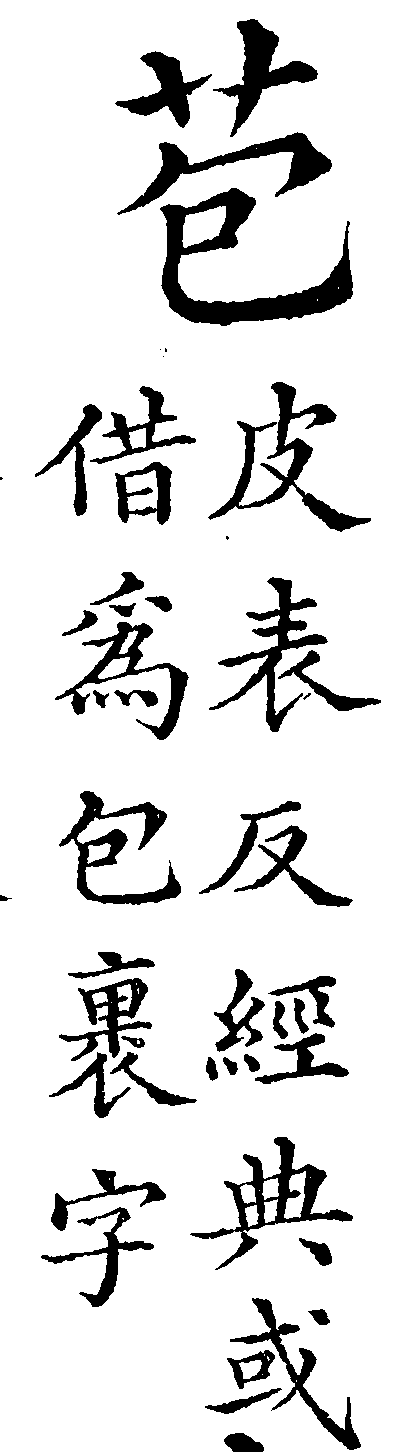 苞
皮表反經典或
借爲包裹字